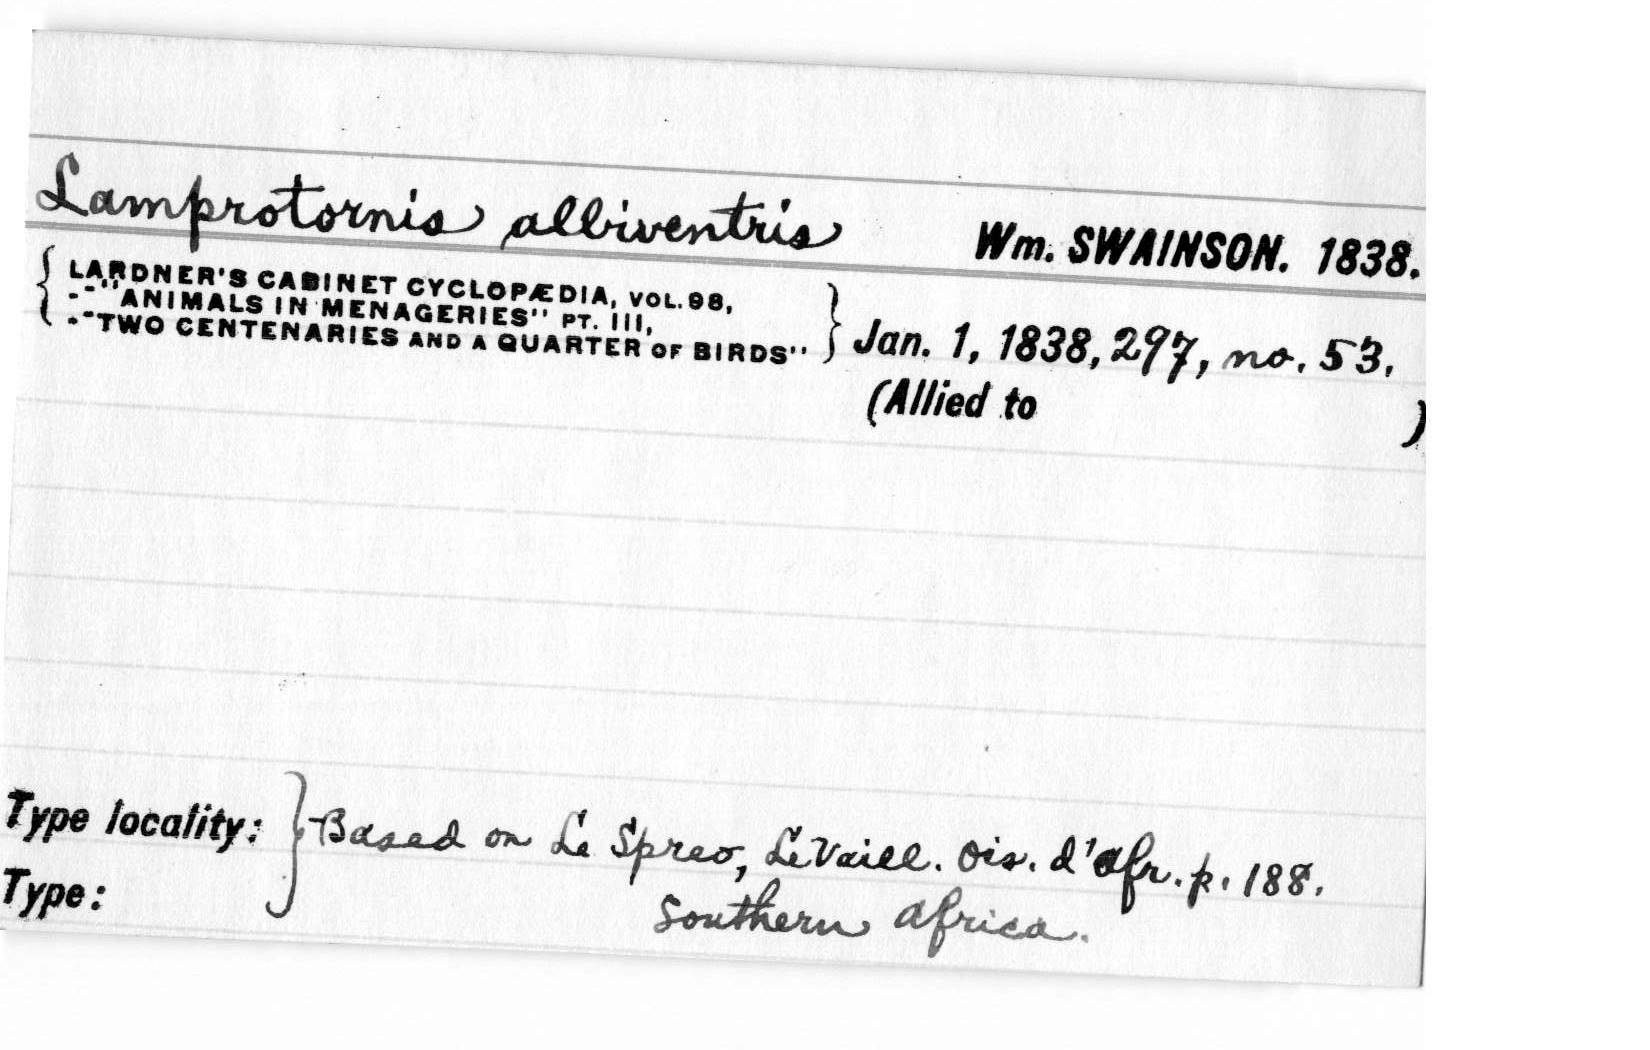 Lamprotornis albiventris Wm. SWAINSON. 1838.
LARDNER'S CABINET CYCLOPÆDIA, VOL. 98,
--"ANIMALS IN MENAGERIES" PT. III,
--"TWO CENTENARIES AND A QUARTER OF BIRDS"
Jan. 1, 1838, 297, no. 53.
(Allied to )
Type locality: Based on Le Spreo, LeVaill. Ois. d'Afr. p. 188.
Type: Southern Africa.